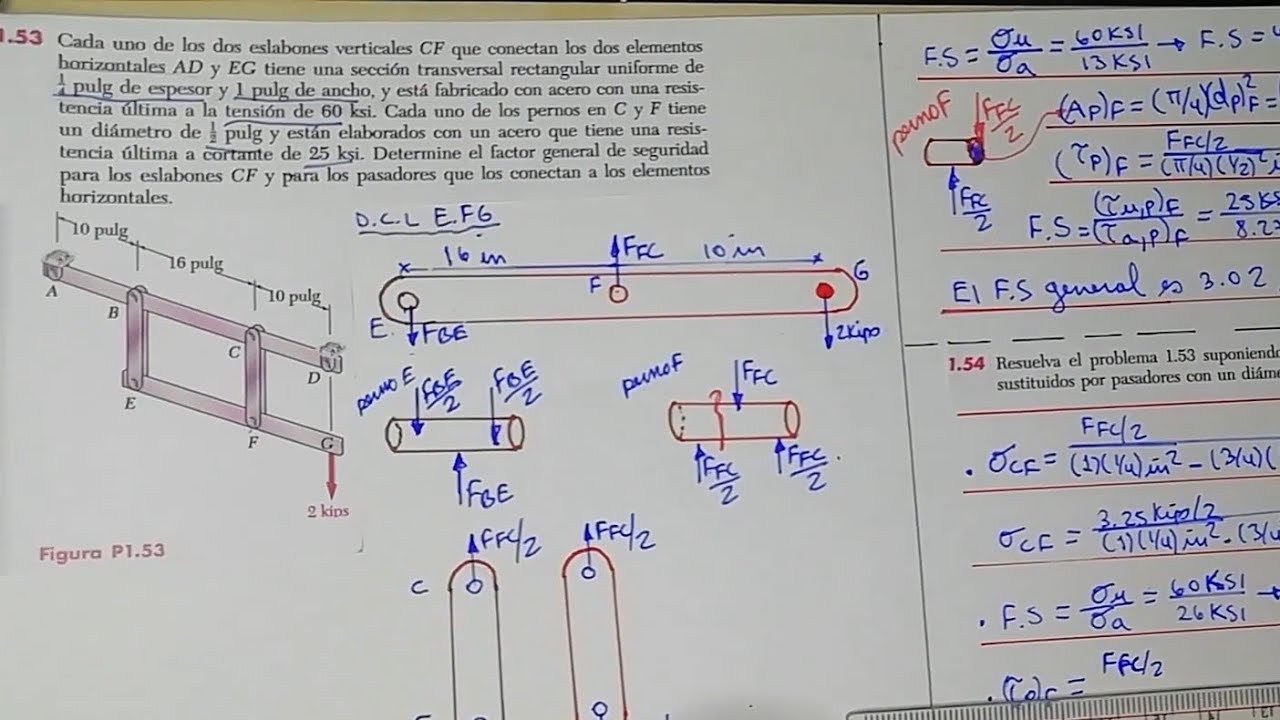 1.53 Cada uno de los dos eslabones verticales CF que conectan los dos elementos
horizontales AD y EG tiene una sección transversal rectangular uniforme de
1/4 pulg de espesor y 1 pulg de ancho, y está fabricado con acero con una resis-
tencia última a la tensión de 60 ksi. Cada uno de los pernos en C y F tiene
un diámetro de 1/2 pulg y están elaborados con un acero que tiene una resis-
tencia última a cortante de 25 ksi. Determine el factor general de seguridad
para los eslabones CF y para los pasadores que los conectan a los elementos
horizontales.
10 pulg
16 pulg
10 pulg
A
B
C
D
E
F
G
2 kips
Figura P1.53
D.C.L E.FG
16 in
FFC
10 in
E.
F
G
FBE
2Kips
perno E
FBE/2
FBE/2
FBE
perno F
FFC
FFC/2
FFC/2
C
FFC/2
FFC/2
F.S = σu/σa = 60KSI/13KSI → F.S =
perno F
FFC/2
FFC/2
(Ap)F = (π/4)(dp)²F =
(τp)F = FFC/2/(π/4)(1/2)²
F.S = (τu,p)F/(τa,p)F = 25KS/8.27
El F.S general es 3.02
1.54 Resuelva el problema 1.53 suponiendo
sustituidos por pasadores con un diáme
. σCF = FFC/2/(1)(1/4) in² - (3/4)(
σCF = 3.25Kip/2/(1)(1/4) in² - (3/4
. F.S = σu/σa = 60KSI/26KSI →
. (τp)F = FFC/2